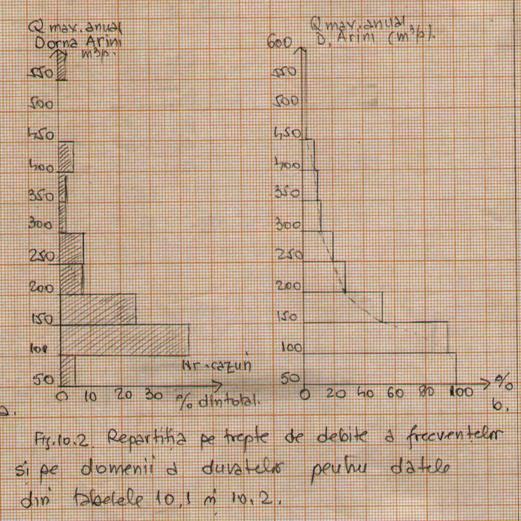 Q max. anual
Dorna Arini
m³/s.
550
500
450
400
350
300
250
200
150
100
50
0 10 20 30
Nr. cazuri
% din total.
a.
Q max. anual
D. Arini (m³/s).
600
550
500
450
400
350
300
250
200
150
100
50
0 20 40 60 80 100 %
b.
Fig. 10.2. Repartiția pe trepte de debite a frecvențelor
și pe domenii a duratelor pentru datele
din tabelele 10.1 și 10.2.